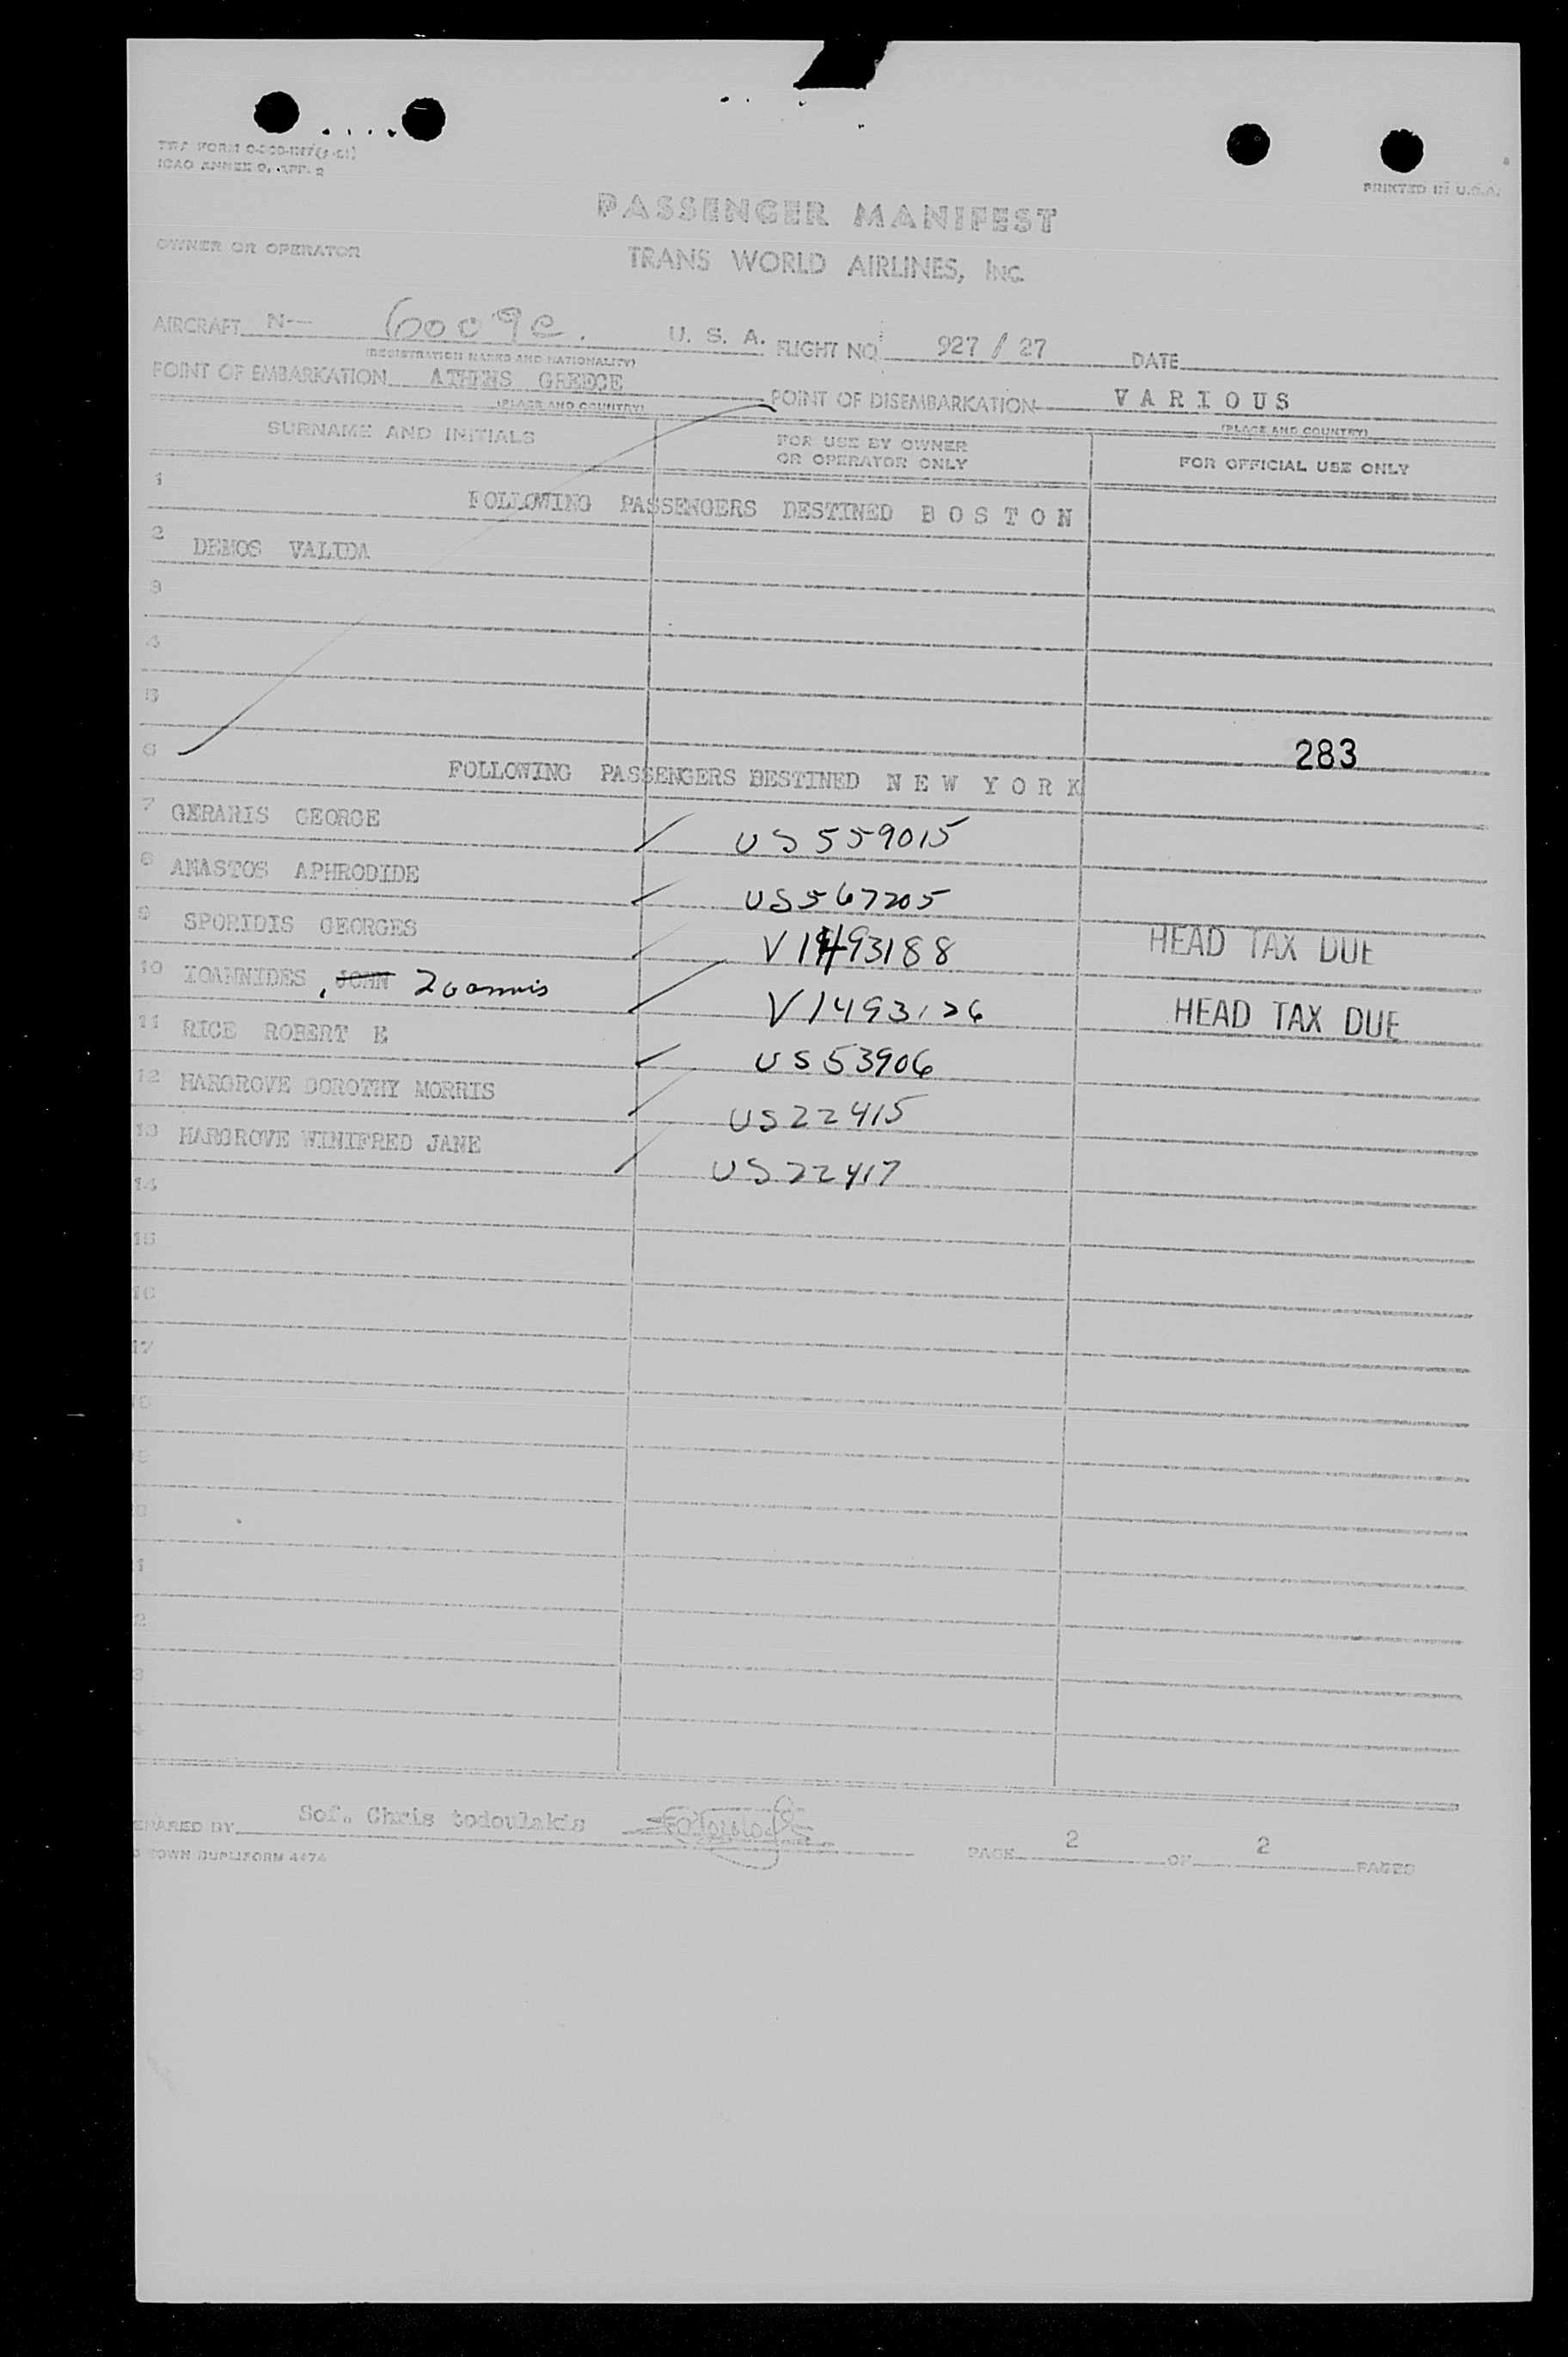 ICAO ANNEX 9, APP. 2
PRINTED IN U.S.A.
PASSENGER MANIFEST
OWNER OR OPERATOR
TRANS WORLD AIRLINES, INC.
AIRCRAFT N— 6009C. U. S. A. FLIGHT NO. 927 / 27 DATE
(REGISTRATION MARKS AND NATIONALITY)
POINT OF EMBARKATION ATHENS GREECE POINT OF DISEMBARKATION VARIOUS
(PLACE AND COUNTRY) (PLACE AND COUNTRY)
SURNAME AND INITIALS FOR USE BY OWNER OR OPERATOR ONLY FOR OFFICIAL USE ONLY
1 FOLLOWING PASSENGERS DESTINED B O S T O N
2 DEMOS VALIDA
3
4
5
6 283
FOLLOWING PASSENGERS DESTINED N E W Y O R K
7 GERARIS GEORGE US 559015
8 ANASTOS APHRODIDE US 567205
9 SPORIDIS GEORGES V 1493188 HEAD TAX DUE
10 IOANNIDES, JOHN Ioannis V 1493126 HEAD TAX DUE
11 RICE ROBERT E US 53906
12 HARGROVE DOROTHY MORRIS US 22415
13 HARGROVE WINIFRED JANE US 22417
14
15
16
17
PREPARED BY Sof. Chris todoulakis PAGE 2 OF 2 PAGES
DUPLIFORM 4474